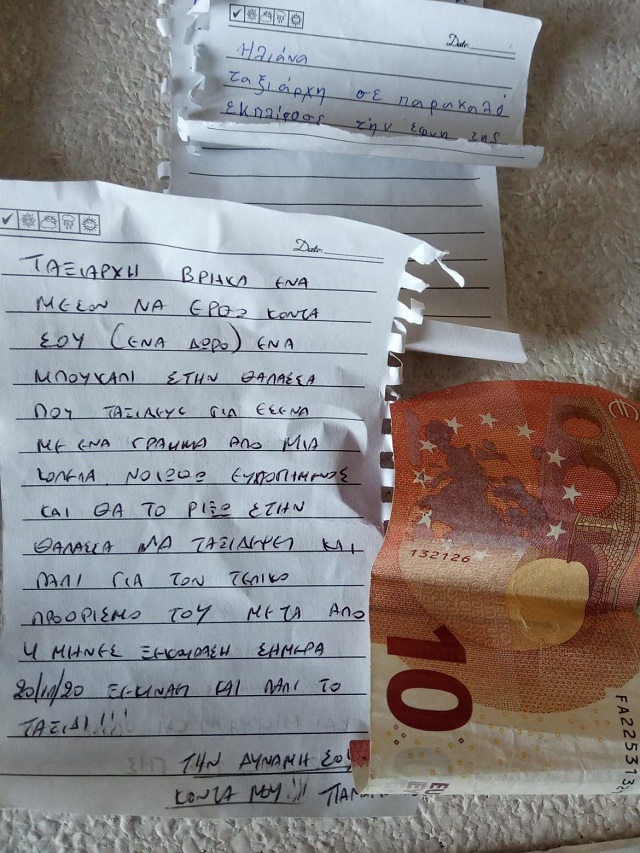 Date:
Ηλιάνα
ταξιάρχη σε παρακαλό
εκπλίροσε την εφχη της
Date:
ΤΑΞΙΑΡΧΗ ΒΡΗΚΑ ΕΝΑ
ΜΕΣΟΝ ΝΑ ΕΡΘΩ ΚΟΝΤΑ
ΣΟΥ (ΕΝΑ ΔΩΡΟ) ΕΝΑ
ΜΠΟΥΚΑΛΙ ΣΤΗΝ ΘΑΛΑΣΣΑ
ΠΟΥ ΤΑΞΙΔΕΥΕ ΓΙΑ ΕΣΕΝΑ
ΜΕ ΕΝΑ ΓΡΑΜΜΑ ΑΠΟ ΜΙΑ
ΚΟΠΕΛΑ ΝΟΙΩΘΩ
ΚΑΙ ΘΑ ΤΟ ΡΙΞΩ ΣΤΗΝ
ΘΑΛΑΣΣΑ ΝΑ ΤΑΞΙΔΕΨΕΙ ΚΑΙ
ΠΑΛΙ ΓΙΑ ΤΟΝ ΤΕΛΙΚΟ
ΠΡΟΟΡΙΣΜΟ ΤΟΥ ΜΕΤΑ ΑΠΟ
4 ΜΗΝΕΣ ΞΕΚΟΥΡΑΣΗ ΣΗΜΕΡΑ
20/10/20 ΞΕΚΙΝΑΕΙ ΚΑΙ ΠΑΛΙ ΤΟ
ΤΑΞΙΔΙ!!!
ΤΗΝ ΔΥΝΑΜΗ ΣΟΥ
ΚΟΝΤΑ ΜΟΥ!!!
132126
10
FA225313